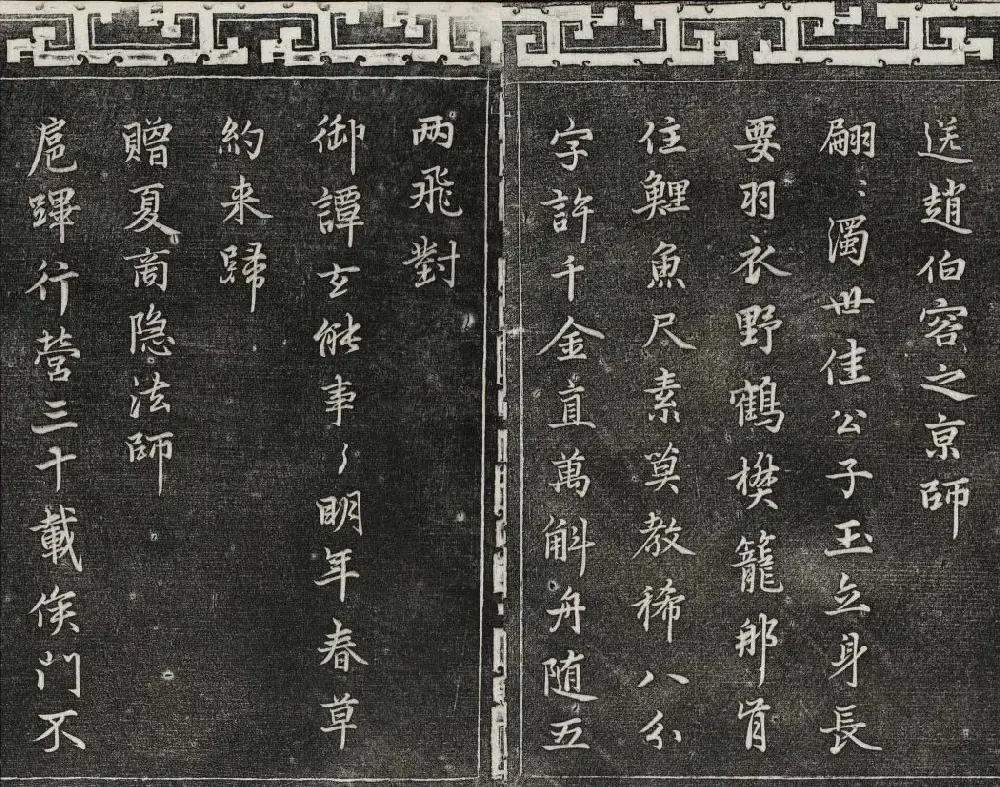 送趙伯容之京師
翩〻濁世佳公子玉立身長
要羽衣野鶴樊籠那肯
住鯉魚尺素莫教稀八分
字許千金直萬斛舟隨五
兩飛對
御譚玄能事了明年春草
約来歸
贈夏商隐法師
扈蹕行營三十載侯門不